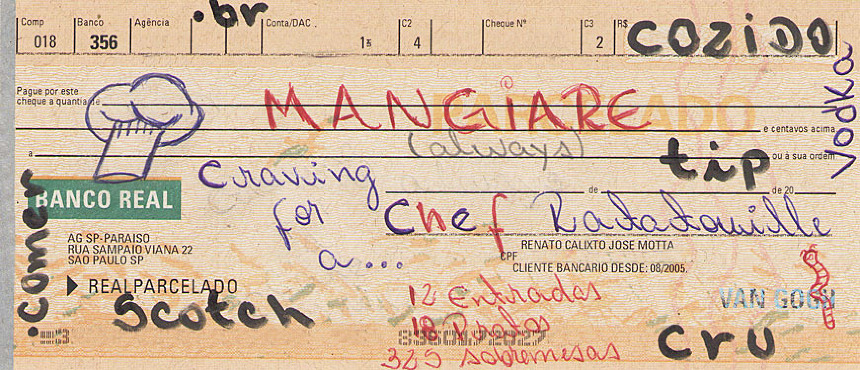 Comp Banco Agência .br Conta/DAC C2 Cheque Nº C3 R$ COZIDO
018 356 4 2
Vodka
Pague por este
cheque a quantia de
MANGIARE
e centavos acima
(always)
a
tip
ou à sua ordem
Craving
for
a...
de de 20
BANCO REAL
chef Ratatouille
.comer
AG SP-PARAISO
RUA SAMPAIO VIANA 22
SAO PAULO SP
RENATO CALIXTO JOSE MOTTA
CPF
CLIENTE BANCARIO DESDE: 08/2005.
REALPARCELADO
12 Entradas
VAN GOGH
Scotch
18 Pratos
325 sobremesas
cru